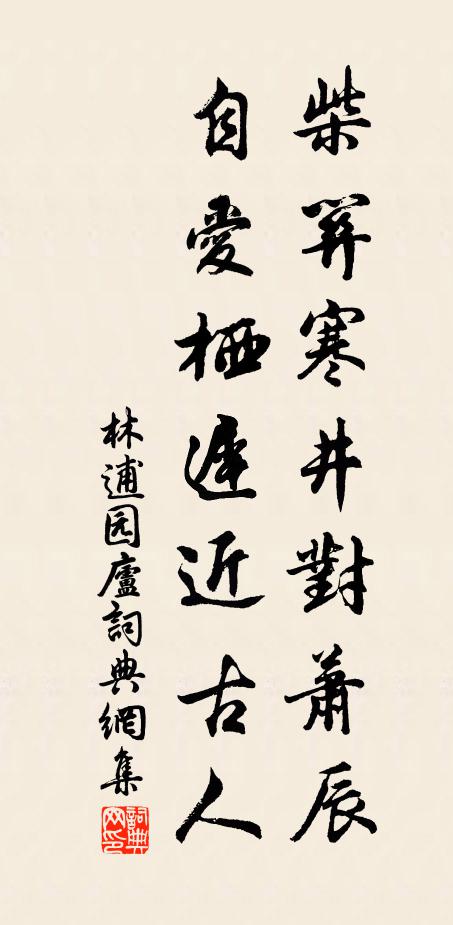 柴關寒井對蕭辰
自愛栖遲近古人
林逋园廬詞典網集
詞典网印